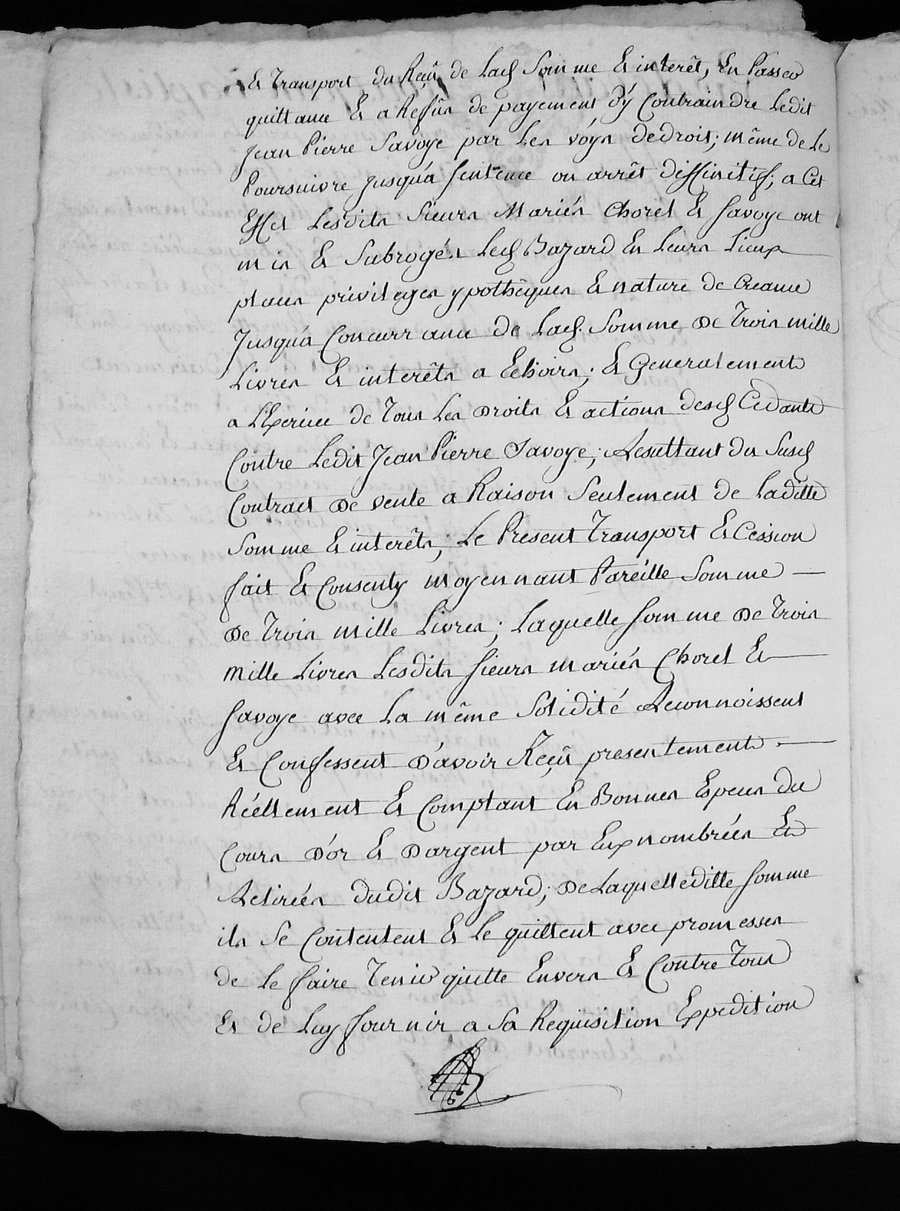 Et Transport du Reçû de lad. Somme Et interêt, En Passer
quittance Et a Reffus de payement d'y Contraindre Ledit
Jean Pierre Savoye par Les voÿes dedroit; même de Le
Poursuivre jusqu'a sentence ou arrêt deffinitif; a Cet
Effet Lesdits Sieurs Mariés Chorel Et Savoye ont
mis Et Subrogés Led. Bazard En Leurs Lieux
places privileges ypothêques Et nature de Creance
Jusqu'a Concurrance de Lad. Somme De Trois mille
Livres Et interêts a Echoirs; Et Generalement
a L'Exercice de Tous Les Droits Et actions desd. Cedants
Contre Ledit Jean Pierre Savoye; Resultant du Susd.
Contract De vente a Raison Seulement de Laditte
Somme Et interêts; Le Present Transport Et Cession
fait Et Consenty moyennant Pareille Somme
De Trois mille Livres; Laquelle somme De Trois
mille Livres Lesdits sieurs mariés Chorel Et
Savoye avec La même Solidité Reconnoissent
Et Confessent D'avoir Reçû presentement
Réellement Et Comptant En Bonnes Especes du
Cours D'or Et D'argent par Eux nombrées Et
Retirées dudit Bazard; De Laquelleditte somme
ils Se Contentent Et Le quittent avec promesses
de Le faire Tenir quitte Envers Et Contre Tous
Et de Luy fournir a Sa Requisition Expedition